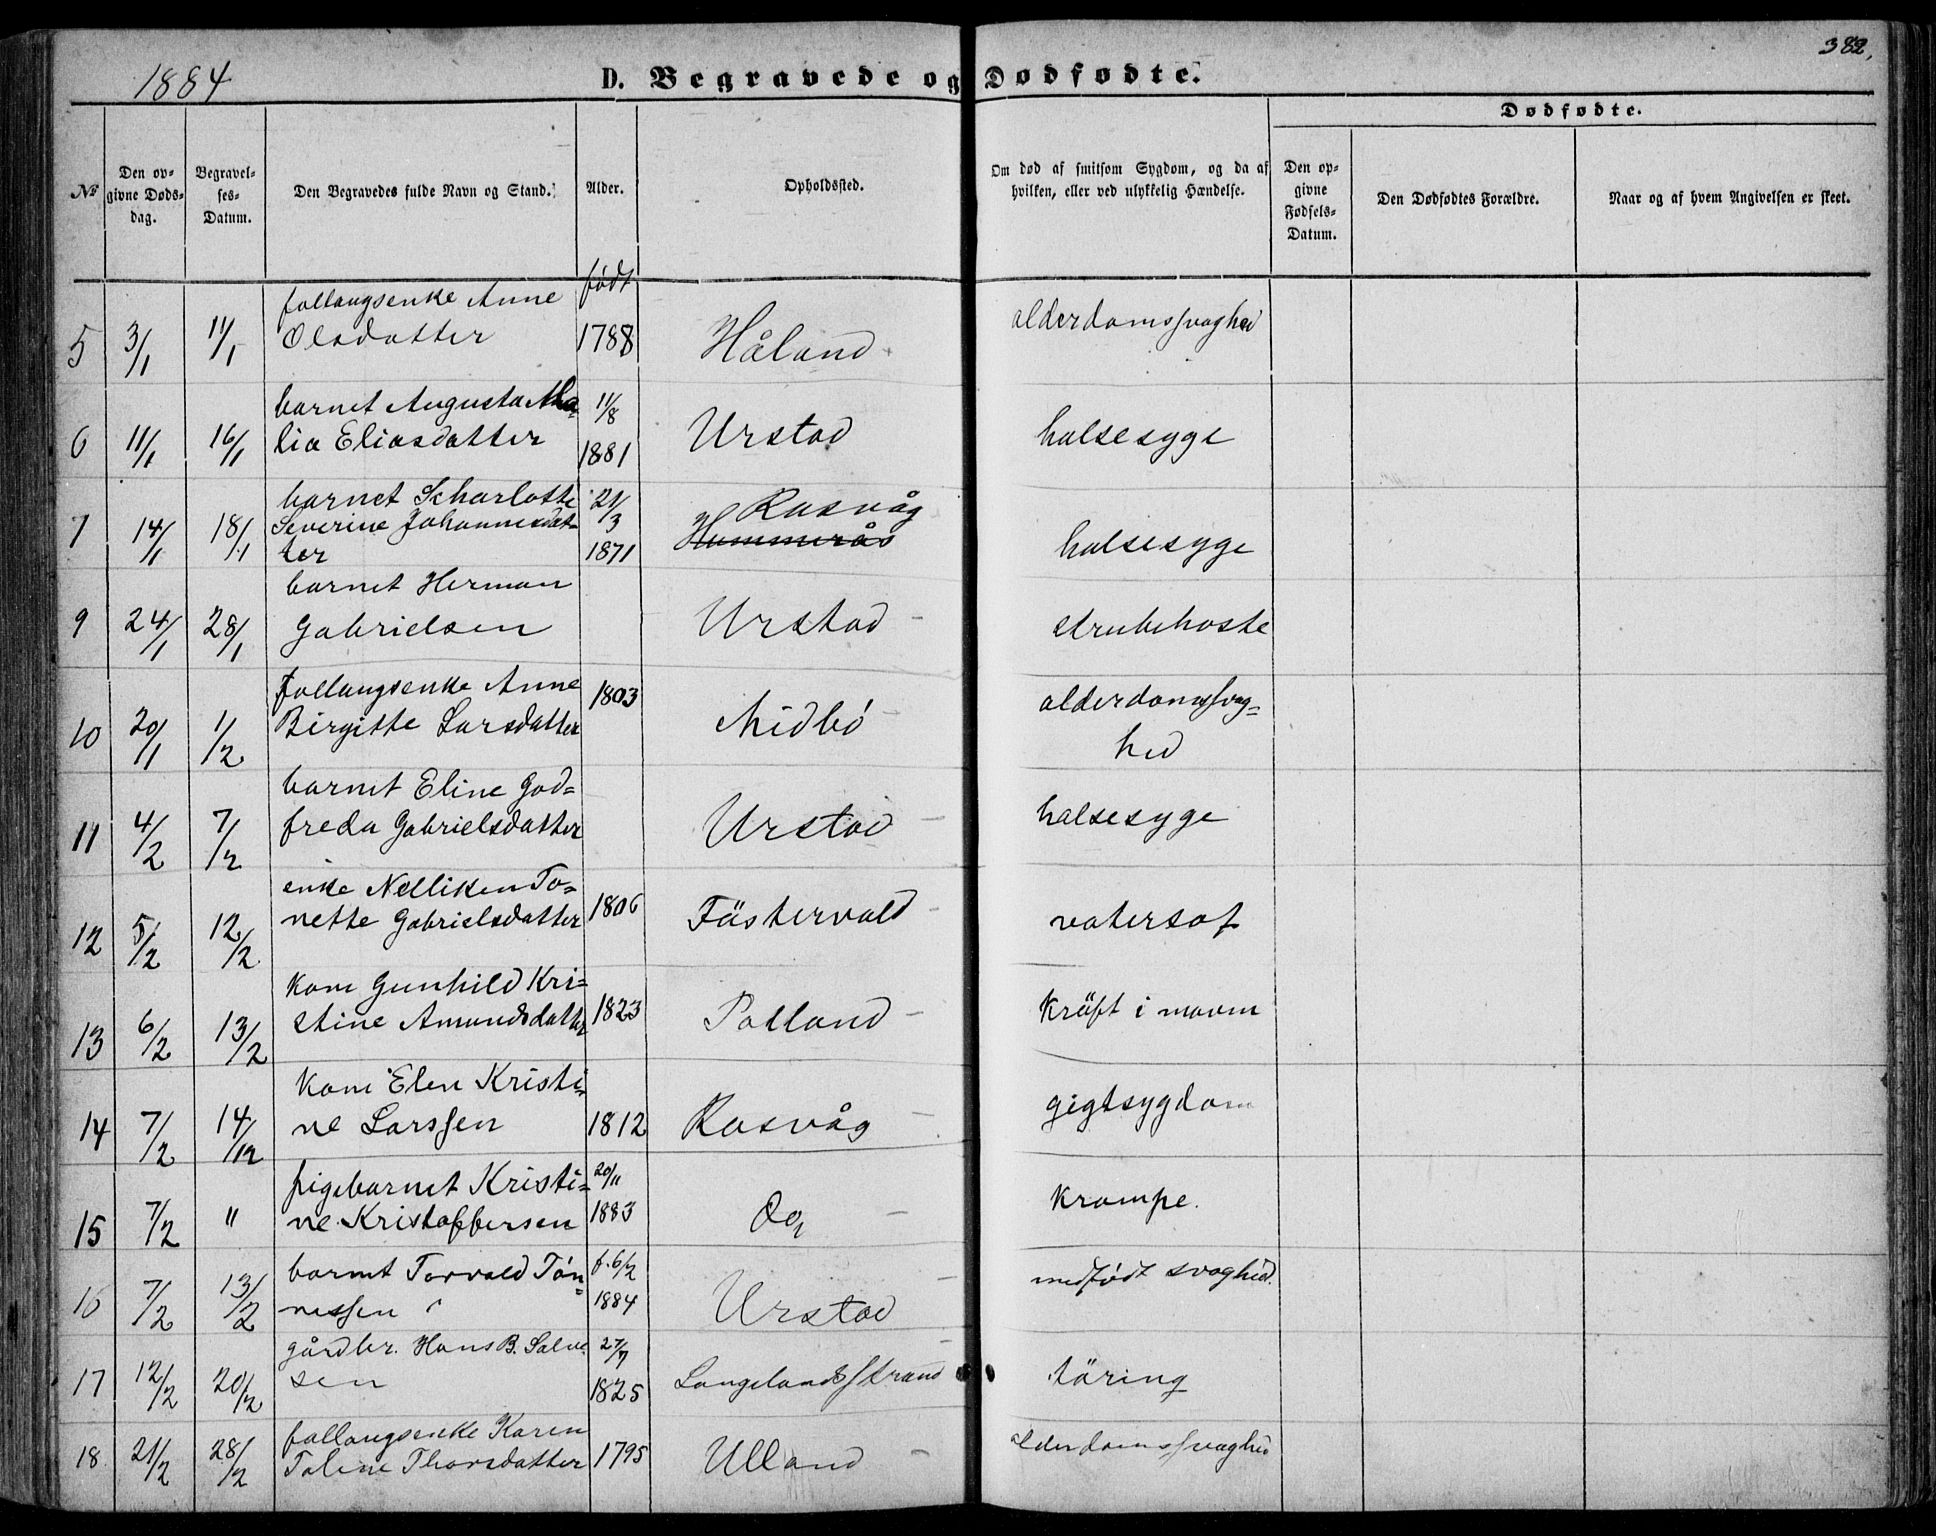 1884
D. Begravede og Dødfødte.
382.
Dødfødte.
№
Den op-
givne Døds-
dag.
Begravel-
ses-
Datum.
Den Begravedes fulde Navn og Stand.
Alder.
Opholdssted.
Om død af smitsom Sygdom, og da af
hvilken, eller ved ulykkelig Hændelse.
Den op-
givne
Fødsels-
Datum.
Den Dødfødtes Forældre.
Naar og af hvem Angivelsen er skeet.
født
follaugsenke Anne
5 3/1 11/1 Olsdatter 1788 Håland alderdomssvaghed
barnet Augusta Ama- 11/8
6 11/1 16/1 lia Eliasdatter 1881 Urstad halsesyge
barnet Scharlotte 21/3 Rasvåg
7 14/1 18/1 Severine Johannesdat- Hammerås
ter 1871 halsesyge
barnet Herman
9 24/1 28/1 Gabrielsen Urstad strubehoste
follaugsenke Anne 1803 alderdomssvag=
10 20/1 1/2 Birgitte Larsdatter Midbö hed
barnet Eline God=
11 4/2 7/2 freda Gabrielsdatter Urstad halsesyge
enke Nelliken To=
12 5/2 12/2 nette Gabrielsdatter 1806 Fästervold vatersot
kone Gunhild Kri=
13 6/2 13/2 stine Amundsdatter 1823 Polland kräft i maven
kone Elen Kristi=
14 7/2 14/12 ne Larssen 1812 Rasvåg gigtsygdom
pigebarnet Kristi= 20/11
15 7/2 " ne Kristoffersen 1883 krampe.
barnet Torvald Tön= f. 6/2
16 7/2 13/2 nessen 1884 Urstad medfödt svaghed.
gårdbr. Hans B. Salve 27/7
17 12/2 20/2 sen 1825 Langelandsstrand täring
follaugsenke Karen
18 21/2 28/2 Taline Thorsdatter 1795 Ulland alderdomssvaghed